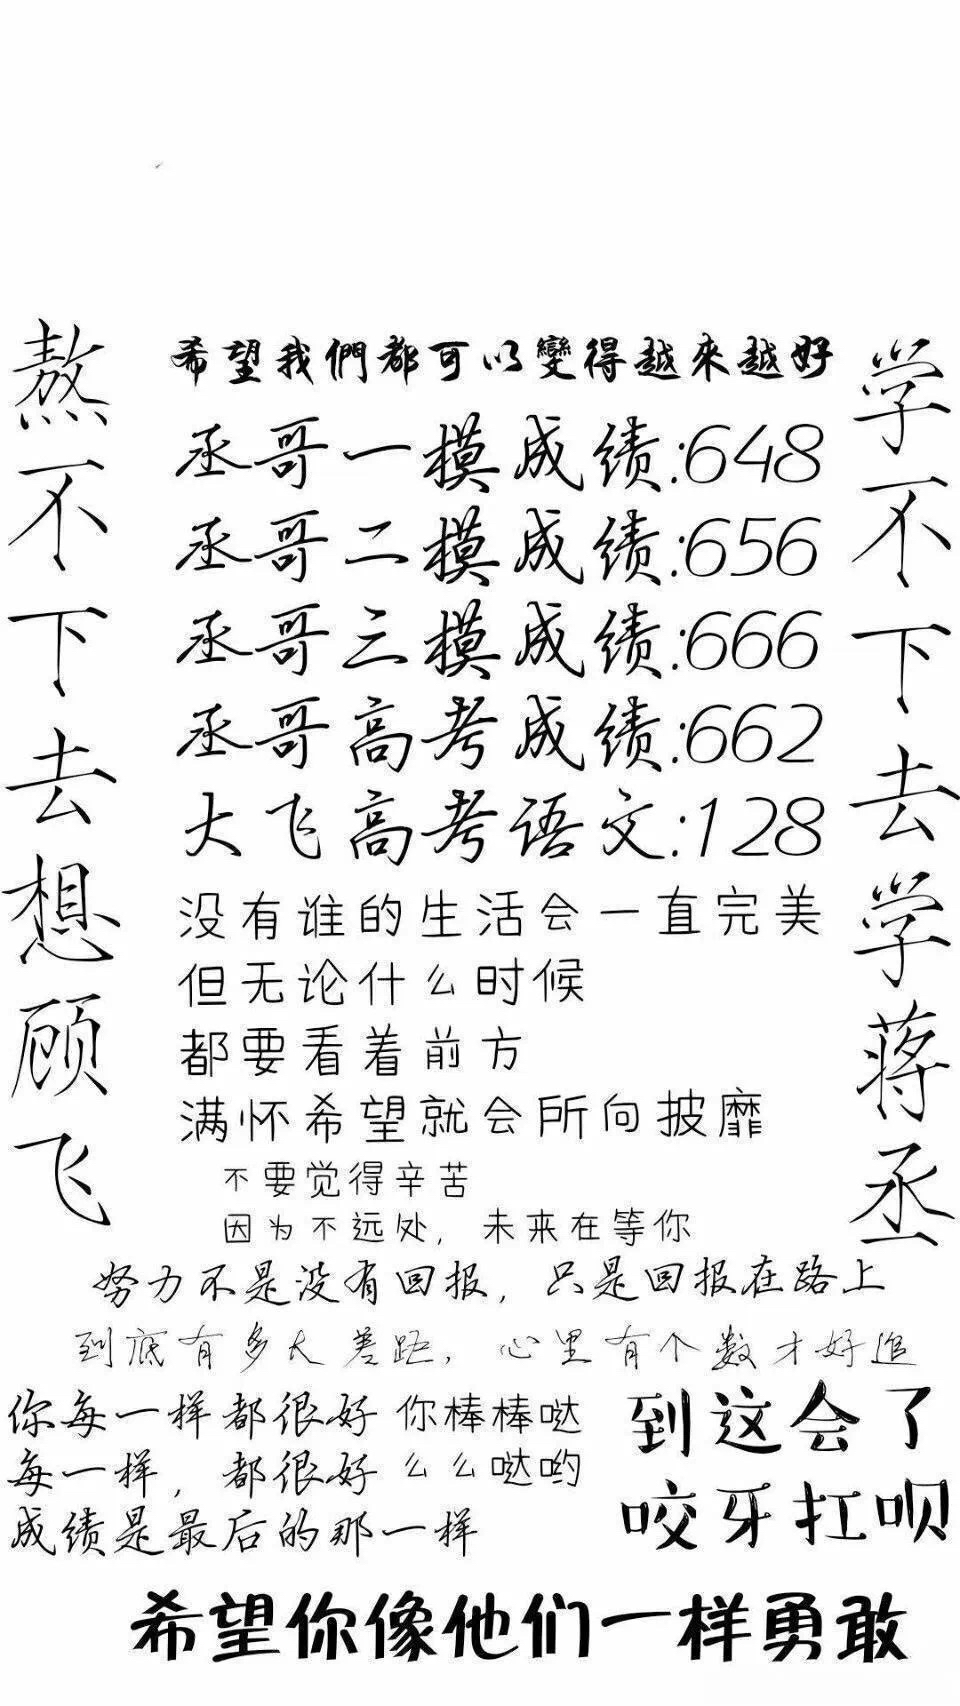 熬不下去想顾飞
希望我們都可以變得越來越好
丞哥一模成绩:648
丞哥二模成绩:656
丞哥三模成绩:666
丞哥高考成绩:662
大飞高考语文:128
没有谁的生活会一直完美
但无论什么时候
都要看着前方
满怀希望就会所向披靡
不要觉得辛苦
因为不远处，未来在等你
学不下去学蒋丞
努力不是没有回报，只是回报在路上
到底有多大差距，心里有个数才好追
你每一样都很好 你棒棒哒
每一样，都很好 么么哒哟
成绩是最后的那一样
到这会了
咬牙扛呗
希望你像他们一样勇敢